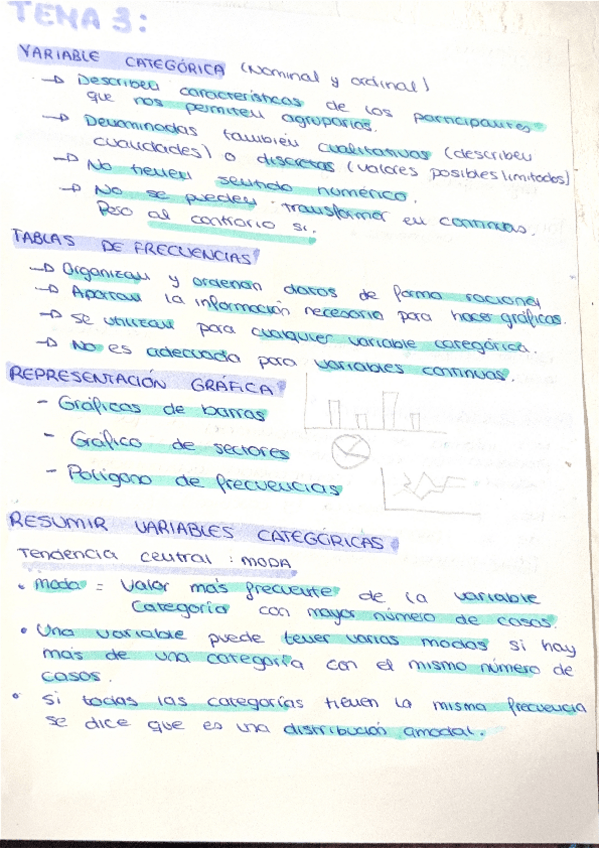 TEMA 3:
VARIABLE CATEGÓRICA (Nominal y ordinal)
→ Describen características de los participantes
que nos permiten agruparlos.
→ Denominadas también cualitativas (describen
cualidades) o discretas (valores posibles limitados)
→ No tienen sentido numérico.
→ No se pueden transformar en continuas.
Peso al contrario si.
TABLAS DE FRECUENCIAS
→ Organizan y ordenan datos de forma racional
→ Aportan la información necesaria para hacer gráficas.
→ Se utilizan para cualquier variable categórica.
→ No es adecuada para variables continuas.
REPRESENTACIÓN GRÁFICA
- Gráficas de barras
- Gráfico de sectores
- Polígono de frecuencias
RESUMIR VARIABLES CATEGÓRICAS
Tendencia central : MODA
• Moda = Valor más frecuente de la variable
Categoría con mayor número de casos.
• Una variable puede tener varias modas si hay
más de una categoría con el mismo número de
casos.
• Si todas las categorías tienen la misma frecuencia
se dice que es una distribución amodal.